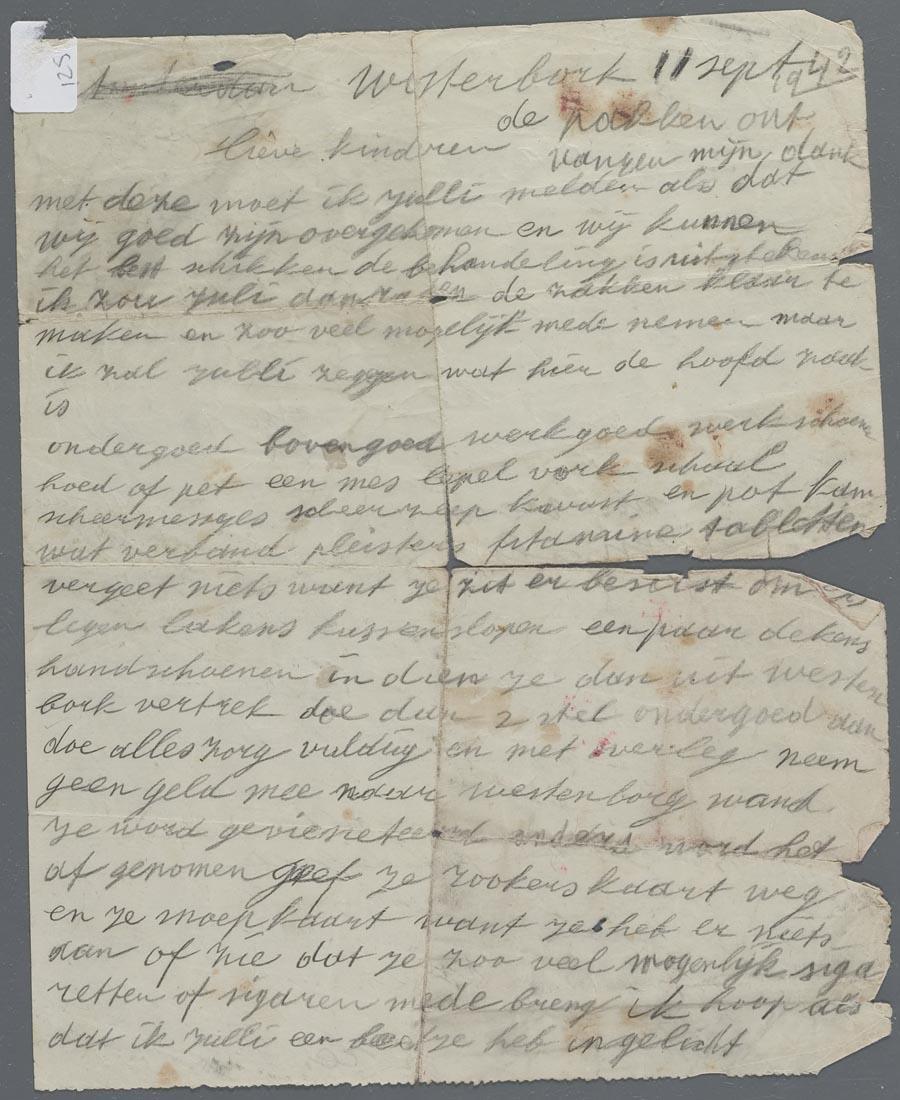 125
Westerbork 11 sept 1942
de pakken ont
vangen mijn dank
lieve kinderen
met deze moet ik julli melden als dat
wij goed zijn overgekomen en wij kunnen
het best schikken de behandeling is uitsteken
ik zou juli dan zagen de zakken klaar te
maken en zoo veel mogelijk mede nemen maar
ik zal julli zeggen wat hier de hoofd zaak
is
ondergoed bovengoed werkgoed werkschoene
hoed of pet een mes lepel vork schaal
scheermesjes scheerzeep kwast en pot kam
wat verband pleisters fitamine tabletten
vergeet niets want je zit er beslist om
legen lakens kussenslopen een paar dekens
handschoenen in dien je dan uit westen
bork vertrek doe dan 2 stel ondergoed aan
doe alles zorg vuldig en met overleg neem
geen geld mee naar westenborg wand
je word gevieseteerd anders word het
af genomen geef je rookers kaart weg
en je snoepkaart want je heb er niets
aan of zie dat je zoo veel mogenlijk siga
retten of sigaren mede breng ik hoop als
dat ik julli een beetje heb ingelicht